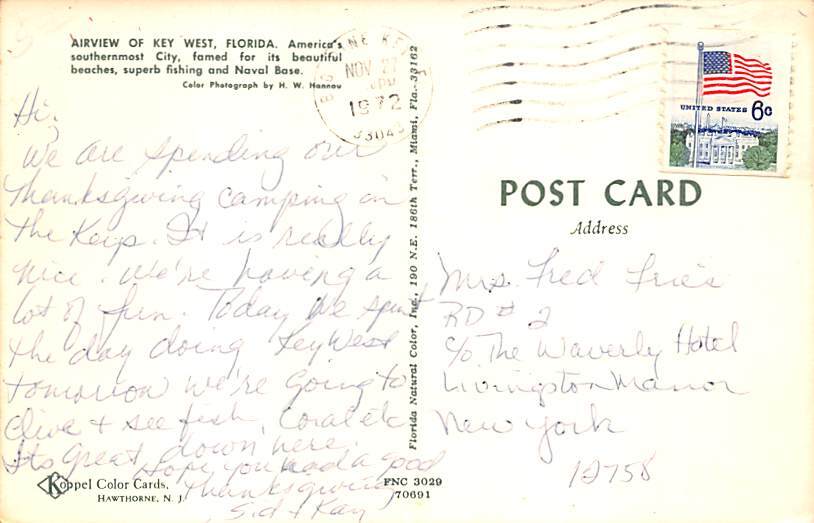 AIRVIEW OF KEY WEST, FLORIDA. America's
southernmost City, famed for its beautiful
beaches, superb fishing and Naval Base.
Color Photograph by H. W. Hannau
Hi,
We are spending our
Thanksgiving camping in
the Keys. It is really
nice. We're having a
lot of fun. Today we spent
the day doing Key West
tomorrow we're going to
dive + see fish, coral etc
Its great down here.
Hope you had a good
Thanksgiving
Sid + Kay
Koppel Color Cards,
HAWTHORNE, N. J.
FNC 3029
70691
Florida Natural Color, Inc., 190 N.E. 186th Terr., Miami, Fla. 33162
NOV 27
PM
1972
33043
UNITED STATES 6c
POST CARD
Address
Mrs. Fred Fries
RD # 2
c/o The Waverly Hotel
Livingston Manor
New York
12758